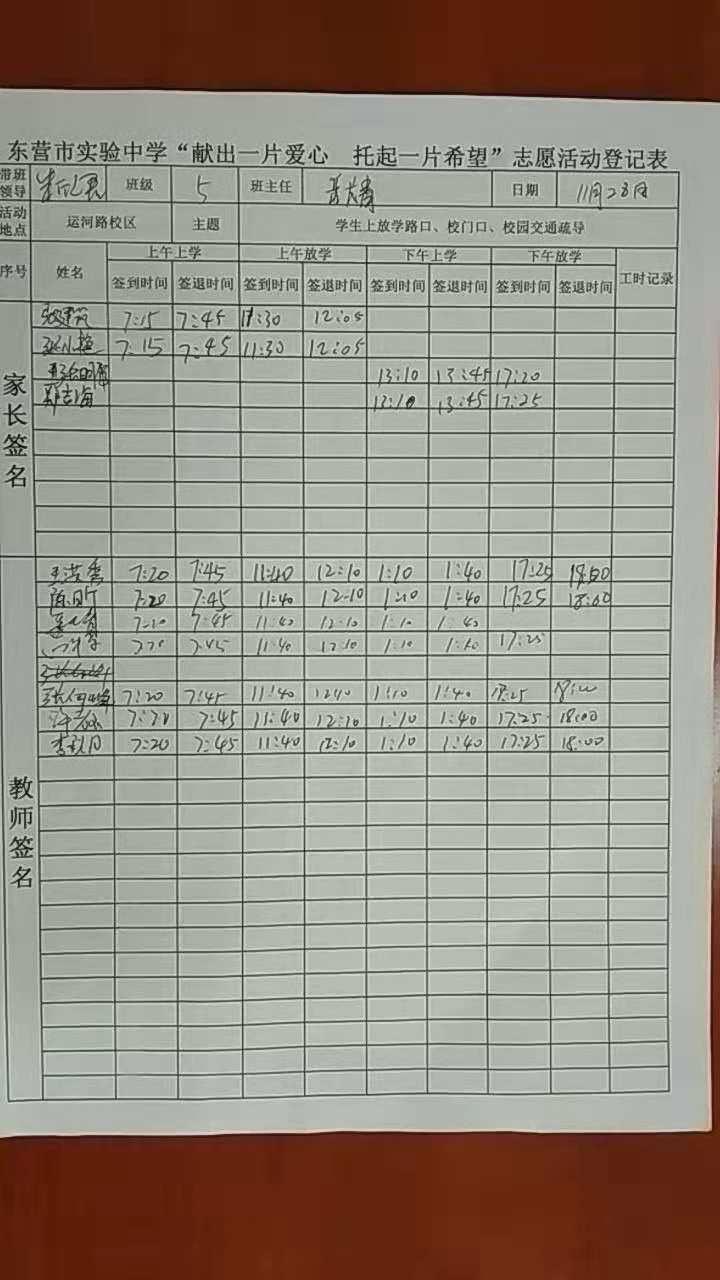 东营市实验中学“献出一片爱心 托起一片希望”志愿活动登记表
带班领导 班级 5 班主任 日期 11月28日
活动地点 运河路校区 主题 学生上放学路口、校门口、校园交通疏导
序号 姓名 上午上学 上午放学 下午上学 下午放学 工时记录
签到时间 签退时间 签到时间 签退时间 签到时间 签退时间 签到时间 签退时间
家长签名
7:15 7:45 11:30 12:05
7:15 7:45 11:30 12:05
13:10 13:45 17:20
郑志海 13:10 13:45 17:25
教师签名
7:20 7:45 11:40 12:10 1:10 1:40 17:25 18:00
7:20 7:45 11:40 12:10 1:10 1:40 17:25 18:00
7:20 7:45 11:40 12:10 1:10 1:40
7:20 7:45 11:40 12:10 1:10 1:40 17:25
7:20 7:45 11:40 1240 1:10 1:40 18:25 18:00
7:20 7:45 11:40 12:10 1:10 1:40 17:25 18:00
7:20 7:45 11:40 12:10 1:10 1:40 17:25 18:00